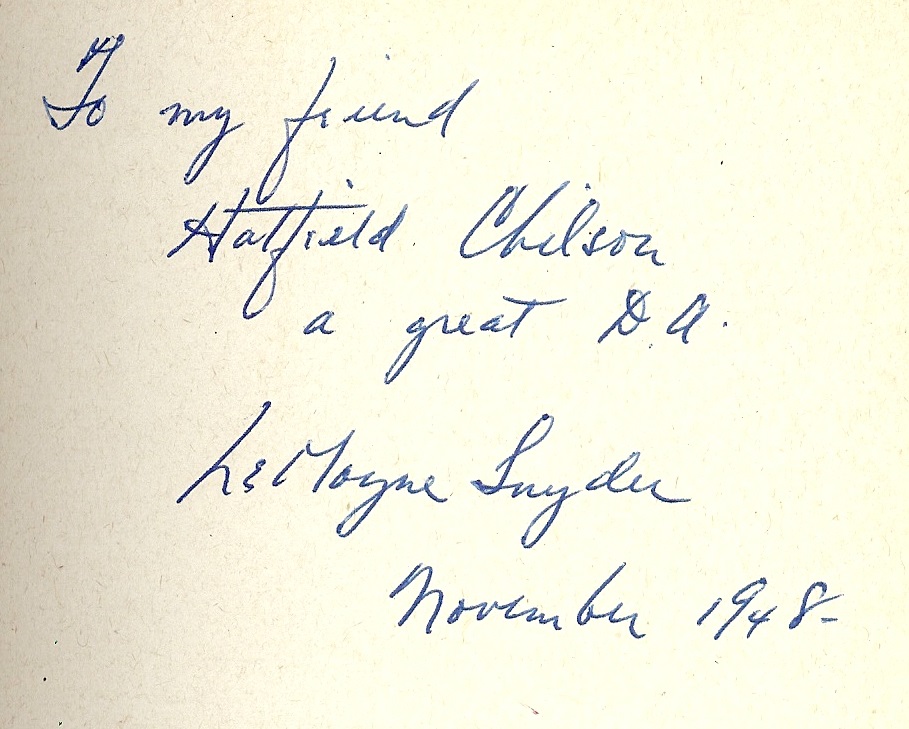 To my friend
Hatfield Chilson
a great D.A.
LeMoyne Snyder
November 1948-